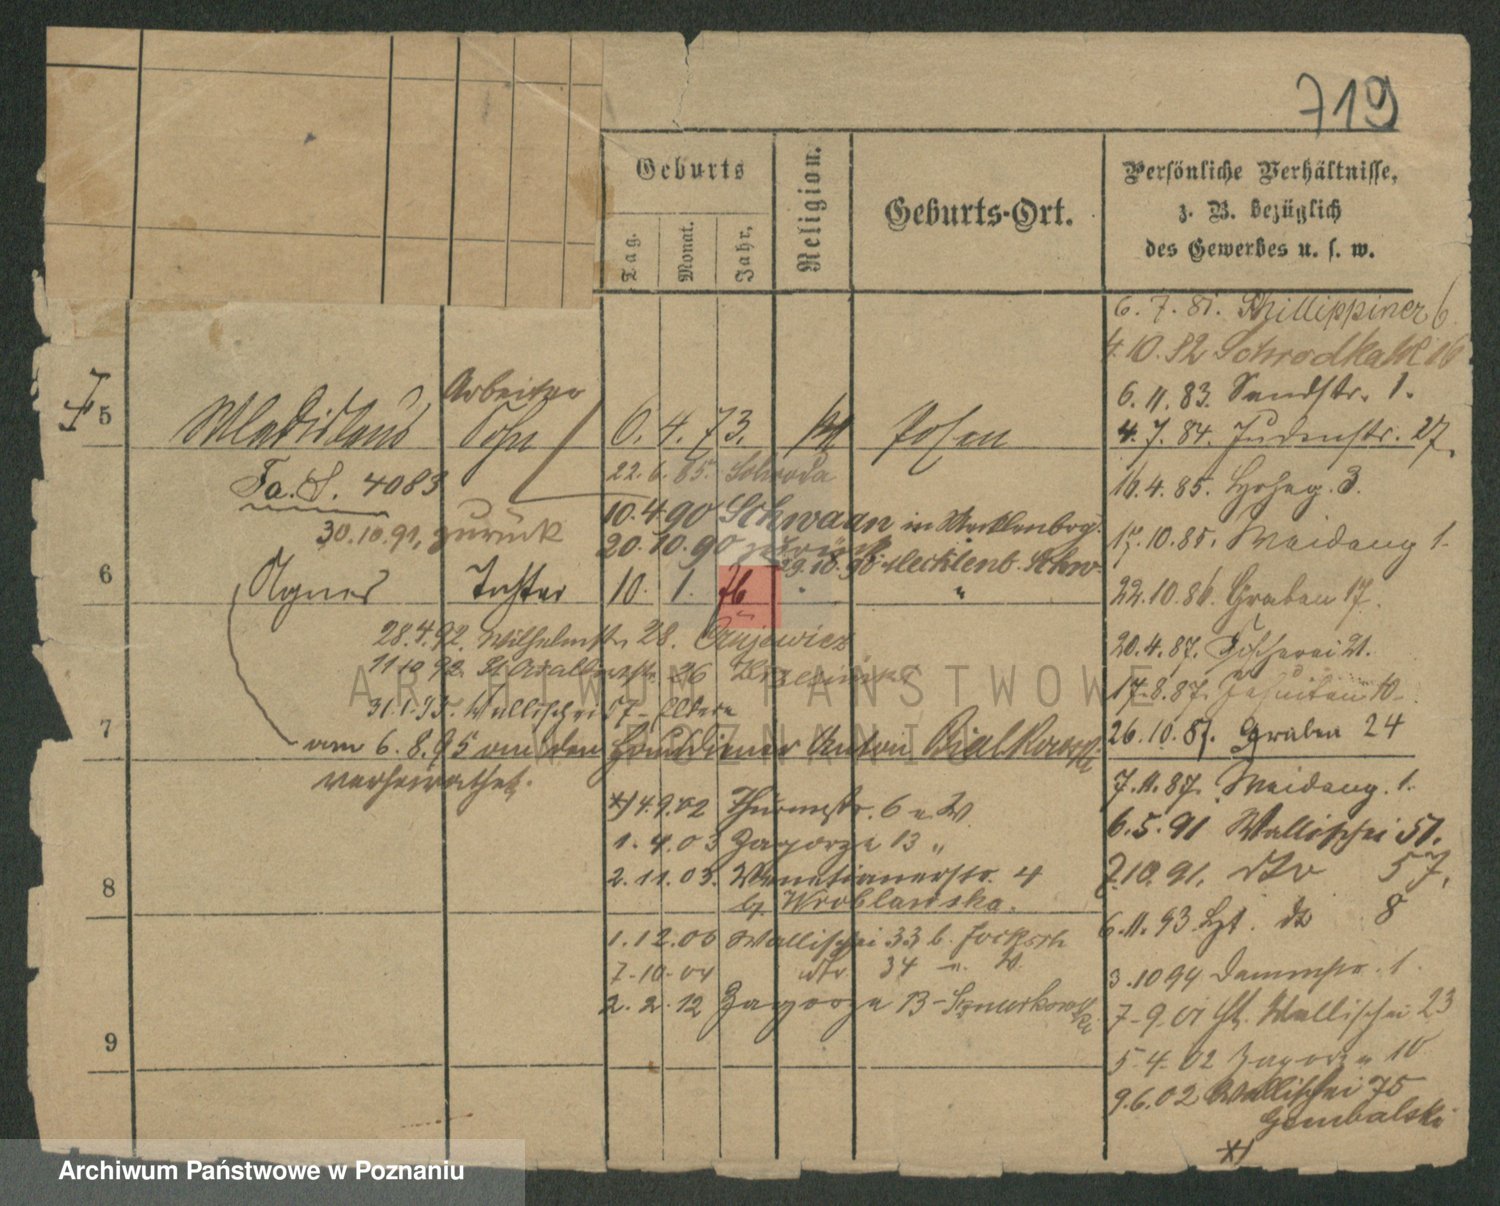 719
Geburts
Tag.
Monat.
Jahr.
Religion.
Geburts-Ort.
Persönliche Verhältnisse,
z. B. bezüglich
des Gewerbes u. s. w.
6. 7. 81. Phillippiner 6
4. 10. 82 16
6. 11. 83. Sandstr. 1.
4. 7. 84. Judenstr. 27.
16. 4. 85. 3.
17. 10. 85. Maidang 1.
22. 10. 86. Graben 17.
20. 4. 87. Fischerei 21.
17. 8. 87. Jesuiten 10
26. 10. 87. Graben 24
7. 11. 87. Maidang. 1.
6. 5. 91 Wallischei 57.
7.10. 91. dto 57.
6. 11. 93. do 8
3. 10 94 Dammstr. 1.
7-9. 01 Wallischei 23
5-4. 02 Zagorze 10
9. 6. 02 Wallischei 75
Gembalski
*)
5
Wladislaus
Arbeiter
Sohn
6. 4. 73. Posen
Fa. S. 4083
22. 6. 85. Schroda
10. 4. 90 Schwaan in Mecklenbg.
30. 10. 91, zurück
20. 10. 90 zurück
29. 10. 90 Mecklenb. Schw.
6
Agnes
Tochter
10. 1. 76 " "
28. 4. 92. Wilhelmstr. 28.
11 10 92. St Adalbertstr. 26
31. 1. 93. Wallischei 57 - Eltern
7
am 6. 8. 95 an den Anton Bialkowski
verheirathet.
*) 4. 9. 02 Thurmstr. 6 u. W.
1. 4. 03 Zagorze 13 "
2. 11. 03. Venetianerstr. 4
8
b. Wroblawska.
1. 12. 06 Wallischei 33 b.
7-10-04 dto 34 W.
2. 2. 12 Zagorze 13 - Sznurkowski
9
ARCHIWUM PAŃSTWOWE
W POZNANIU
Archiwum Państwowe w Poznaniu